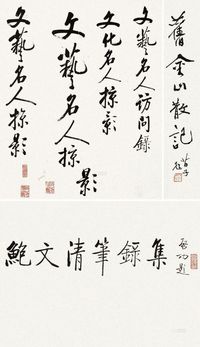 舊金山散記
苗子
文藝名人訪問錄
文化名人掠影
文藝名人掠影
文藝名人掠影
鮑文清筆錄集
启功題